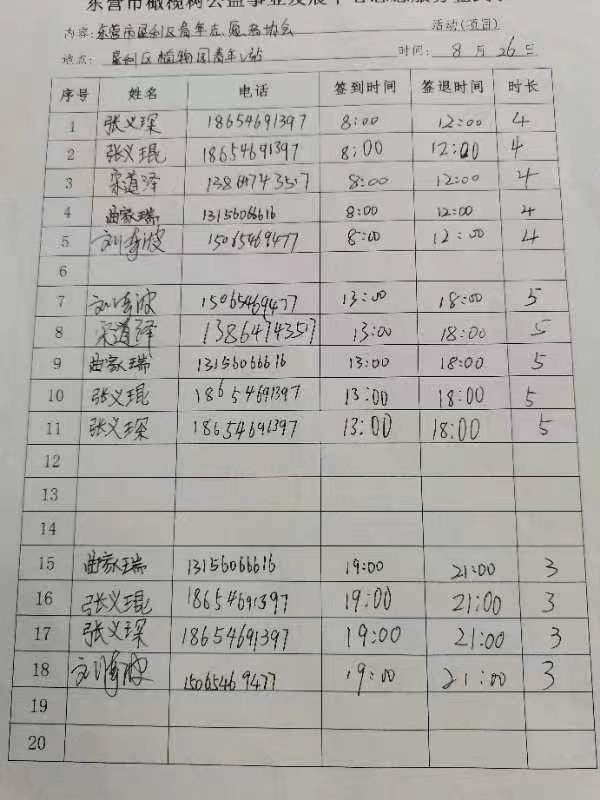 东营市橄榄树公益事业发展中心志愿服务签到表
内容: 东营市垦利区青年志愿者协会 活动(项目)
地点: 垦利区植物园青年小站 时间: 8月26日
序号 姓名 电话 签到时间 签退时间 时长
1 张义琛 18654691397 8:00 12:00 4
2 张义琨 18654691397 8:00 12:00 4
3 宋道泽 13864743517 8:00 12:00 4
4 曲家瑞 13156066616 8:00 12:00 4
5 刘海波 15065469477 8:00 12:00 4
6
7 刘海波 15065469477 13:00 18:00 5
8 宋道泽 13864743517 13:00 18:00 5
9 曲家瑞 13156066616 13:00 18:00 5
10 张义琨 18654691397 13:00 18:00 5
11 张义琛 18654691397 13:00 18:00 5
12
13
14
15 曲家瑞 13156066616 19:00 21:00 3
16 张义琨 18654691397 19:00 21:00 3
17 张义琛 18654691397 19:00 21:00 3
18 刘海波 15065469477 19:00 21:00 3
19
20